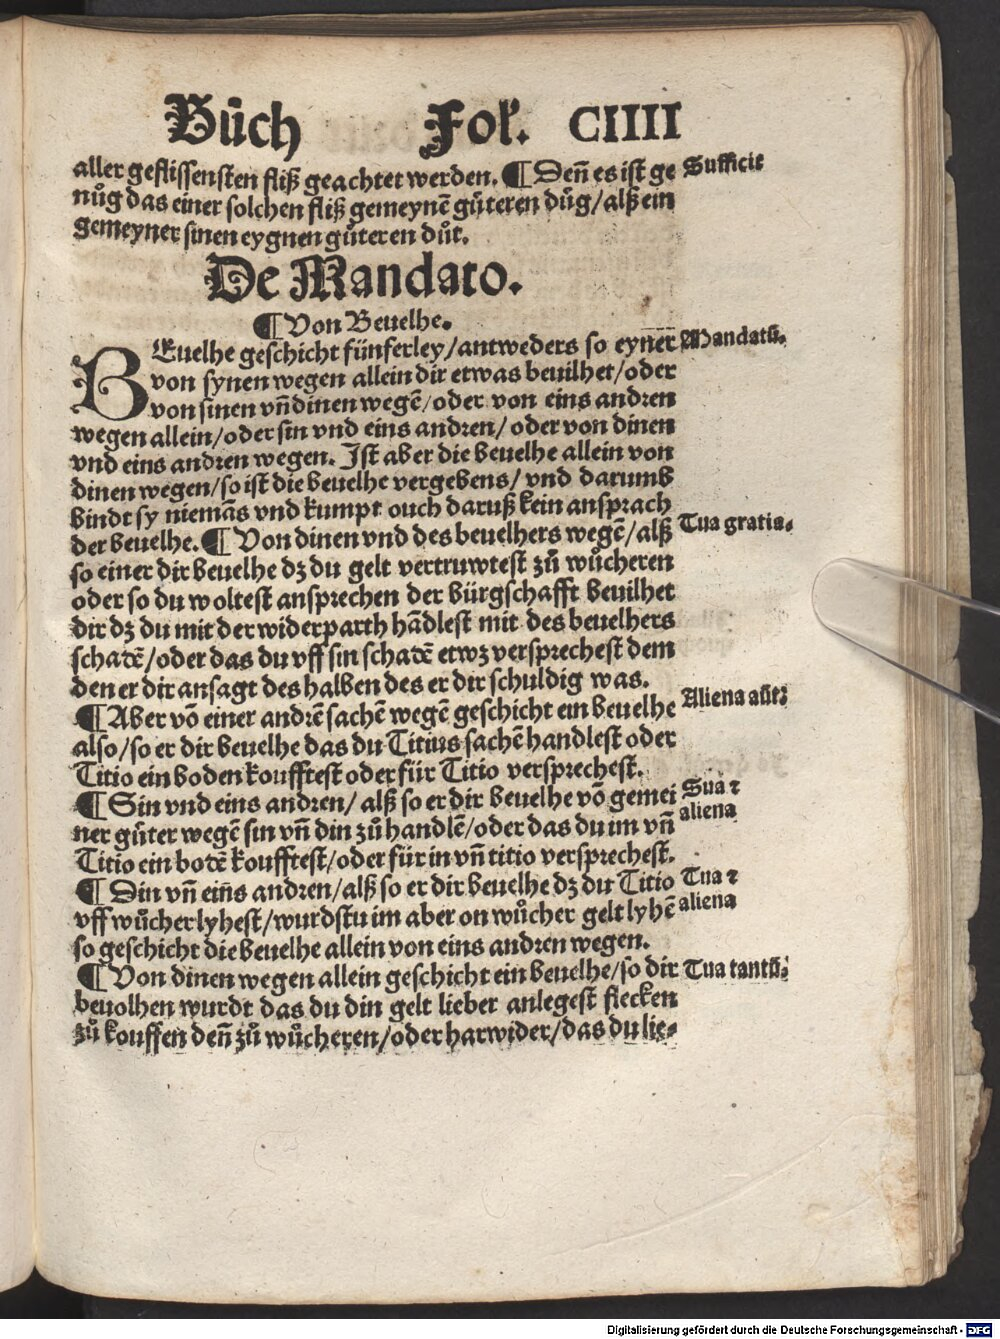 Bůch Fol. CIIII
aller geflissensten fliß geachtet werden. ¶ Deñ es ist ge Sufficit
nůg das einer solchen fliß gemeynē gůteren důg/alß ein
gemeyner sinen eygnen gůteren důt.
De Mandato.
¶ Von Beuelhe.
BEuelhe geschicht fünferley/antweders so eyner Mandatū.
von synen wegen allein dir etwas beuilhet/oder
von sinen vñ dinen wegē/oder von eins andren
wegen allein/oder sin vnd eins andren/ oder von dinen
vnd eins andren wegen. Ist aber die beuelhe allein von
dinen wegen/so ist die beuelhe vergebens/ vnd darumb
bindt sy niemās vnd kumpt ouch daruß kein ansprach
der beuelhe. ¶ Von dinen vnd des beuelhers wegē/alß Tua gratia.
so einer dir beuelhe dz du gelt vertruwtest zů wůcheren
oder so du woltest ansprechen der bürgschafft beuilhet
dir dz du mit der widerparth hādlest mit des beuelhers
schatē/oder das du vff sin schatē etwz versprechest dem
den er dir ansagt des halben des er dir schuldig was.
¶ Aber vō einer andrē sachē wegē geschicht ein beuelhe Aliena aūt
also/so er dir beuelhe das du Titius sachē handlest oder
Titio ein boden koufftest oder für Titio versprechest.
¶ Sin vnd eins andren/ alß so er dir beuelhe vō gemei Sua ⁊
ner gůter wegē sin vñ din zů handlē/oder das du im vñ aliena
Titio ein botē koufftest/oder für in vñ titio versprechest.
¶ Din vñ eiñs andren/alß so er dir beuelhe dz du Titio Tua ⁊
vff wůcher lyhest/wurdstu im aber on wůcher gelt lyhē aliena
so geschicht die beuelhe allein von eins andren wegen.
¶ Von dinen wegen allein geschicht ein beuelhe/so dir Tua tantū.
beuolhen wurdt das du din gelt lieber anlegest flecken
zů kouffen deñ zů wůcheren/oder harwider/das du lie-
Digitalisierung gefördert durch die Deutsche Forschungsgemeinschaft - DFG